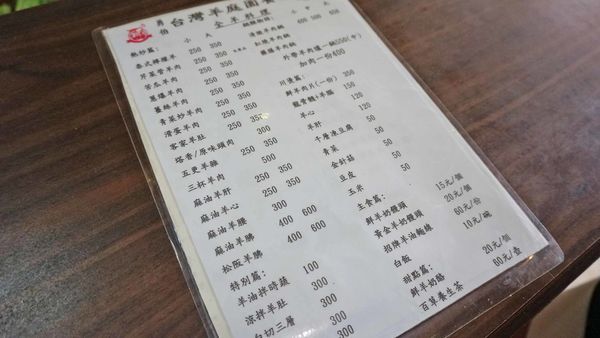 勇伯 台灣羊庭園餐
全羊料理
熱炒篇: 小 大
泰式檸檬羊 250 350
芹菜管羊肉 250 350
苦瓜羊肉 250 350
蔥爆羊肉 250 350
薑絲羊肉 250 350
青菜炒羊肉 250 350
滑蛋羊肉 250 350
客家羊肚 250 350
塔香/原味頭肉 300
五更羊雜 250 350
三杯羊肉 500
麻油羊肝 250 350
麻油羊心
麻油羊腰
麻油羊腩 400 600
松阪羊腩 400 600
特別篇:
羊油拌時蔬 100
涼拌羊肚 300
白切三層 300
300
清燉羊肉鍋 400 600
紅燒羊肉鍋
藥膳羊肉鍋
外帶羊肉爐一鍋550(中)
加肉一份400
川燙篇:
鮮羊肉片(一份) 350
龍骨髓+羊腦 150
羊心 120
羊肝 120
千層凍豆腐 50
青菜 50
金針菇 50
豆皮 50
玉米 50
主食篇:
鮮羊奶饅頭 15元/個
黃金羊奶饅頭 20元/個
招牌羊油麵線 60元/份
白飯 10元/碗
甜點篇:
鮮羊奶酪 20元/個
百草養生茶 60元/壺